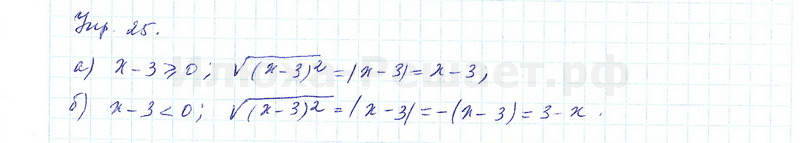 Упр. 25.
а) x-3⩾0; √(x-3)² = |x-3| = x-3,
б) x-3<0; √(x-3)² = |x-3| = -(x-3) = 3-x.